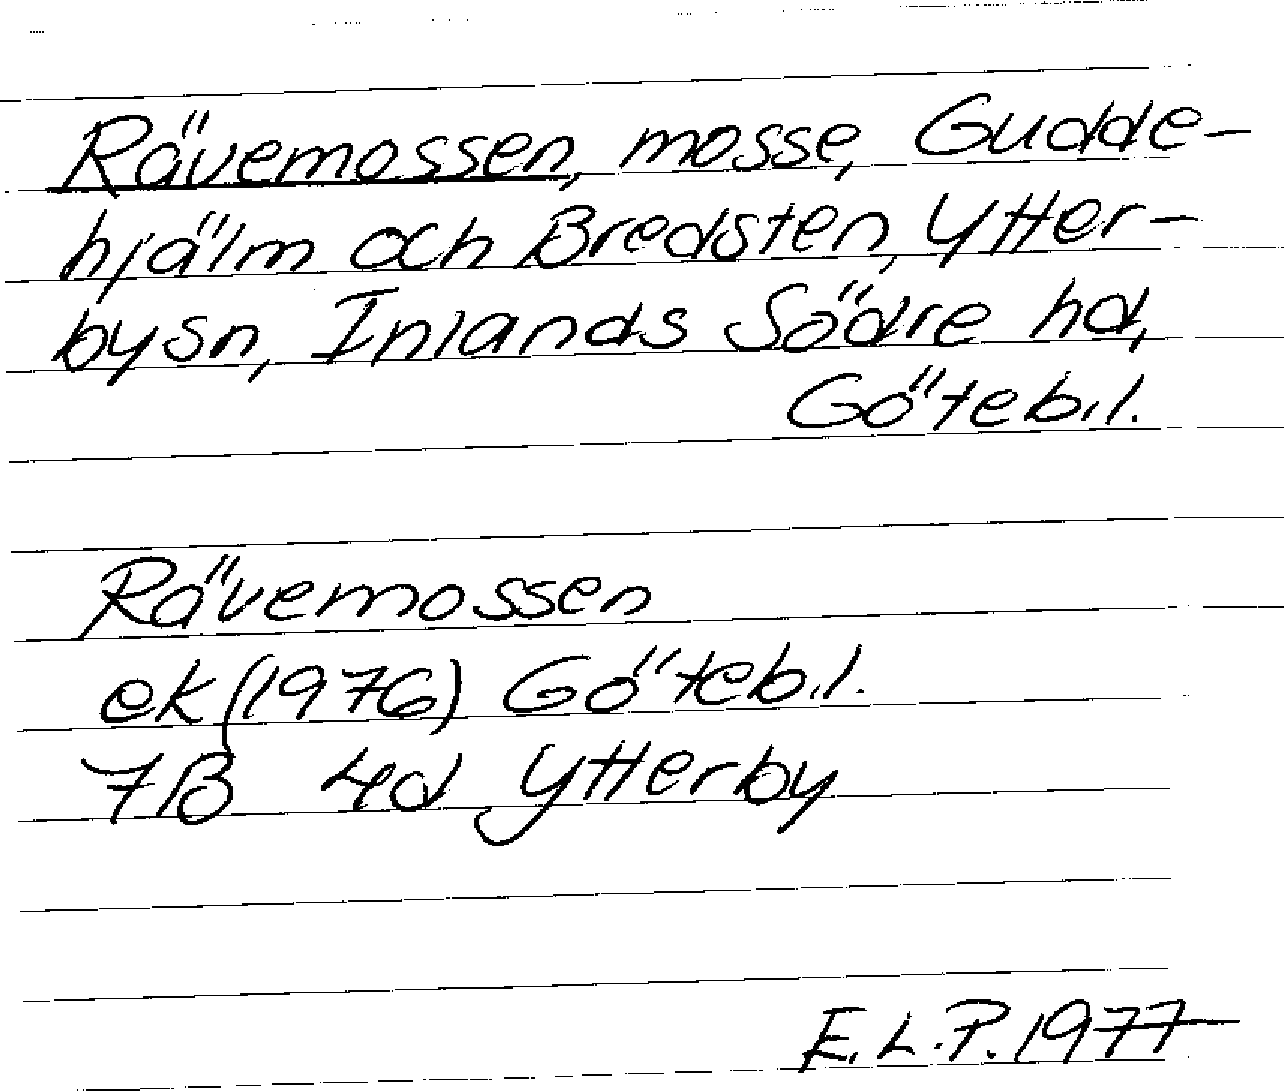 Rävemossen, mosse, Gudde-
hjälm och Bredsten, Ytter-
bysn, Inlands Södre hd,
Göteb.l.
Rävemossen
ek (1976) Göteb.l.
7B 4d Ytterby
E.L.P. 1977